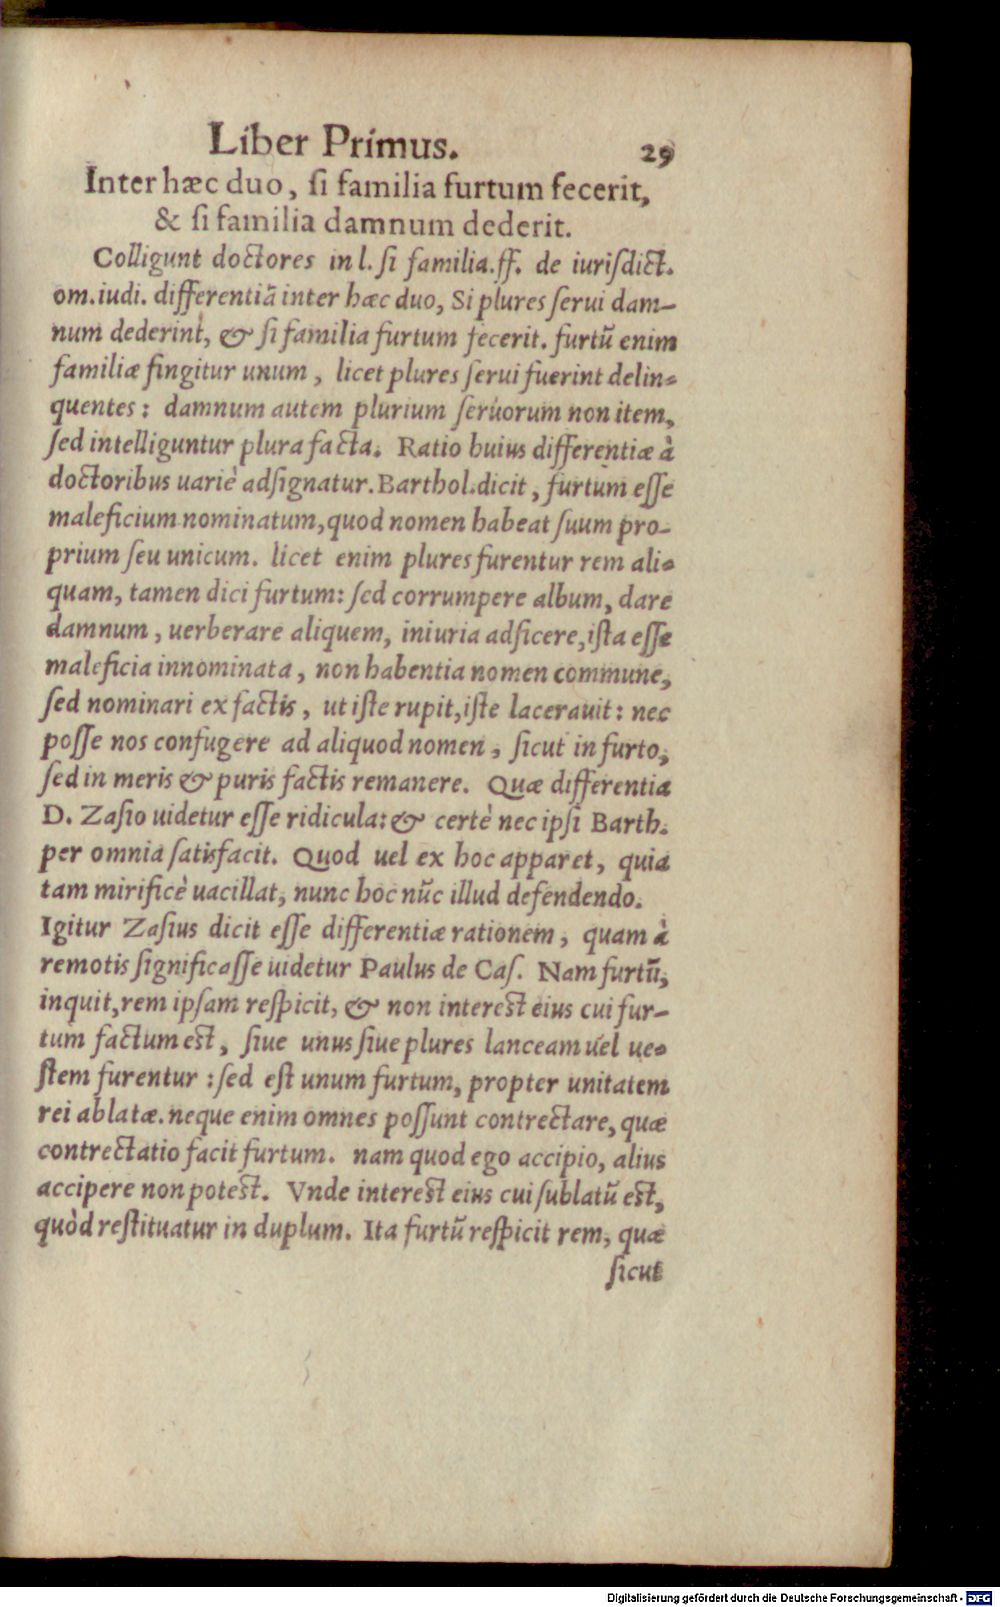 Liber Primus. 29
Inter hæc duo, si familia furtum fecerit,
& si familia damnum dederit.
Colligunt doctores in l. si familia. ff. de iurisdict.
om. iudi. differentiā inter hæc duo, Si plures serui dam-
num dederint, & si familia furtum fecerit. furtū enim
familiæ fingitur unum, licet plures serui fuerint delin-
quentes: damnum autem plurium seruorum non item,
sed intelliguntur plura facta. Ratio huius differentiæ à
doctoribus uariè adsignatur. Barthol. dicit, furtum esse
maleficium nominatum, quod nomen habeat suum pro-
prium seu unicum. licet enim plures furentur rem ali-
quam, tamen dici furtum: sed corrumpere album, dare
damnum, uerberare aliquem, iniuria adficere, ista esse
maleficia innominata, non habentia nomen commune,
sed nominari ex factis, ut iste rupit, iste lacerauit: nec
posse nos confugere ad aliquod nomen, sicut in furto,
sed in meris & puris factis remanere. Quæ differentia
D. Zasio uidetur esse ridicula: & certè nec ipsi Barth.
per omnia satisfacit. Quod uel ex hoc apparet, quia
tam mirificè uacillat, nunc hoc nūc illud defendendo.
Igitur Zasius dicit esse differentiæ rationem, quam à
remotis significasse uidetur Paulus de Cas. Nam furtū,
inquit, rem ipsam respicit, & non interest eius cui fur-
tum factum est, siue unus siue plures lanceam uel ue-
stem furentur: sed est unum furtum, propter unitatem
rei ablatæ. neque enim omnes possunt contrectare, quæ
contrectatio facit furtum. nam quod ego accipio, alius
accipere non potest. Vnde interest eius cui sublatū est,
quòd restituatur in duplum. Ita furtū respicit rem, quæ
sicut
Digitalisierung gefördert durch die Deutsche Forschungsgemeinschaft - DFG